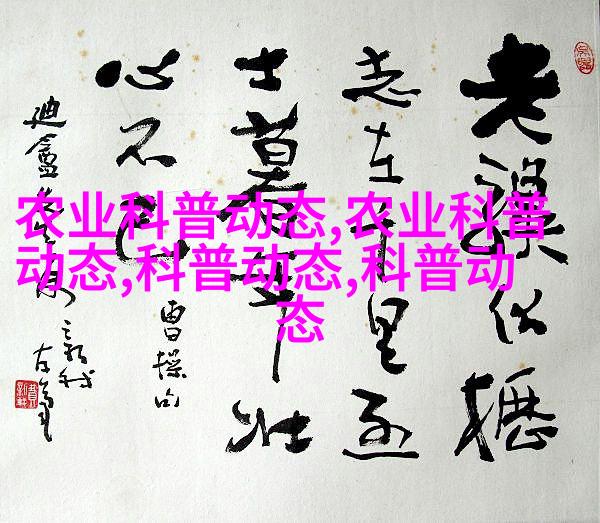 农业科普动态,农业科普
动态,科普动态,科普动
态
老驥伏櫪
志在千里烈
士暮年壮
心不已
曹操句